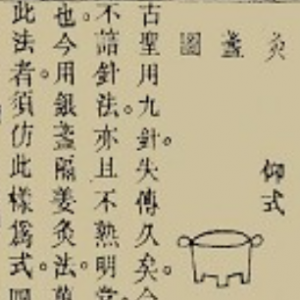 灸盞圖
仰式
古聖用九針。失傳久矣。今
不諳針法。亦且不熟明堂
也。今用銀盞隔姜灸法。萬
此法者。須仿此樣爲式。